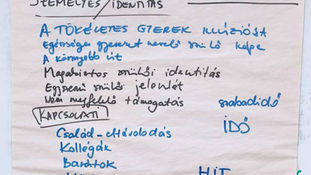 SZEMÉLYES/IDENTITÁS
A TÖKÉLETES GYEREK ILLÚZIÓJA
Egészséges gyereket nevelő szülő képe
A könnyebb út
Magabiztos szülői identitás
Egyszerű szülői jelenlét
Nem megfelelő támogatás
szabadidő
KAPCSOLATI
IDŐ
Család - eltávolodás
Kollégák
Barátok
HIT